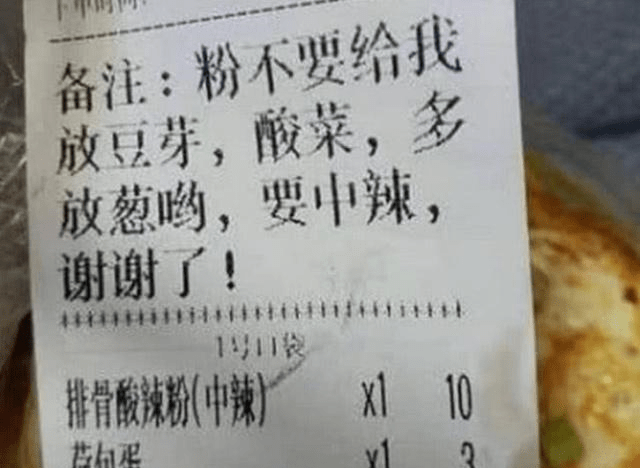 备注：粉不要给我
放豆芽，酸菜，多
放葱哟，要中辣，
谢谢了！
1号口袋
排骨酸辣粉(中辣) x1 10
荷包蛋 x1 3